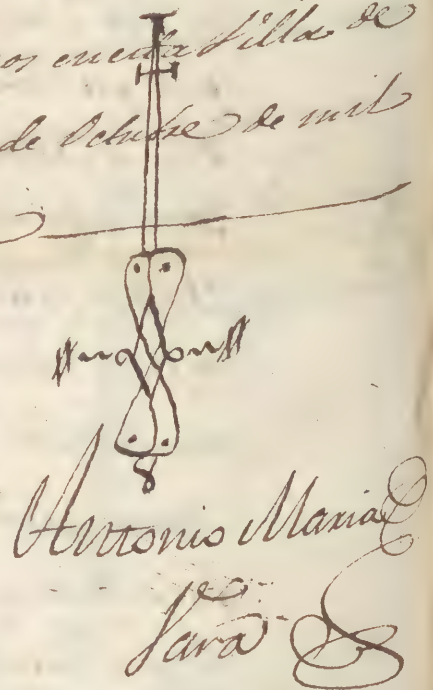 os en esta Villa de
de Octubre de mil
Antonio Maria
Jara